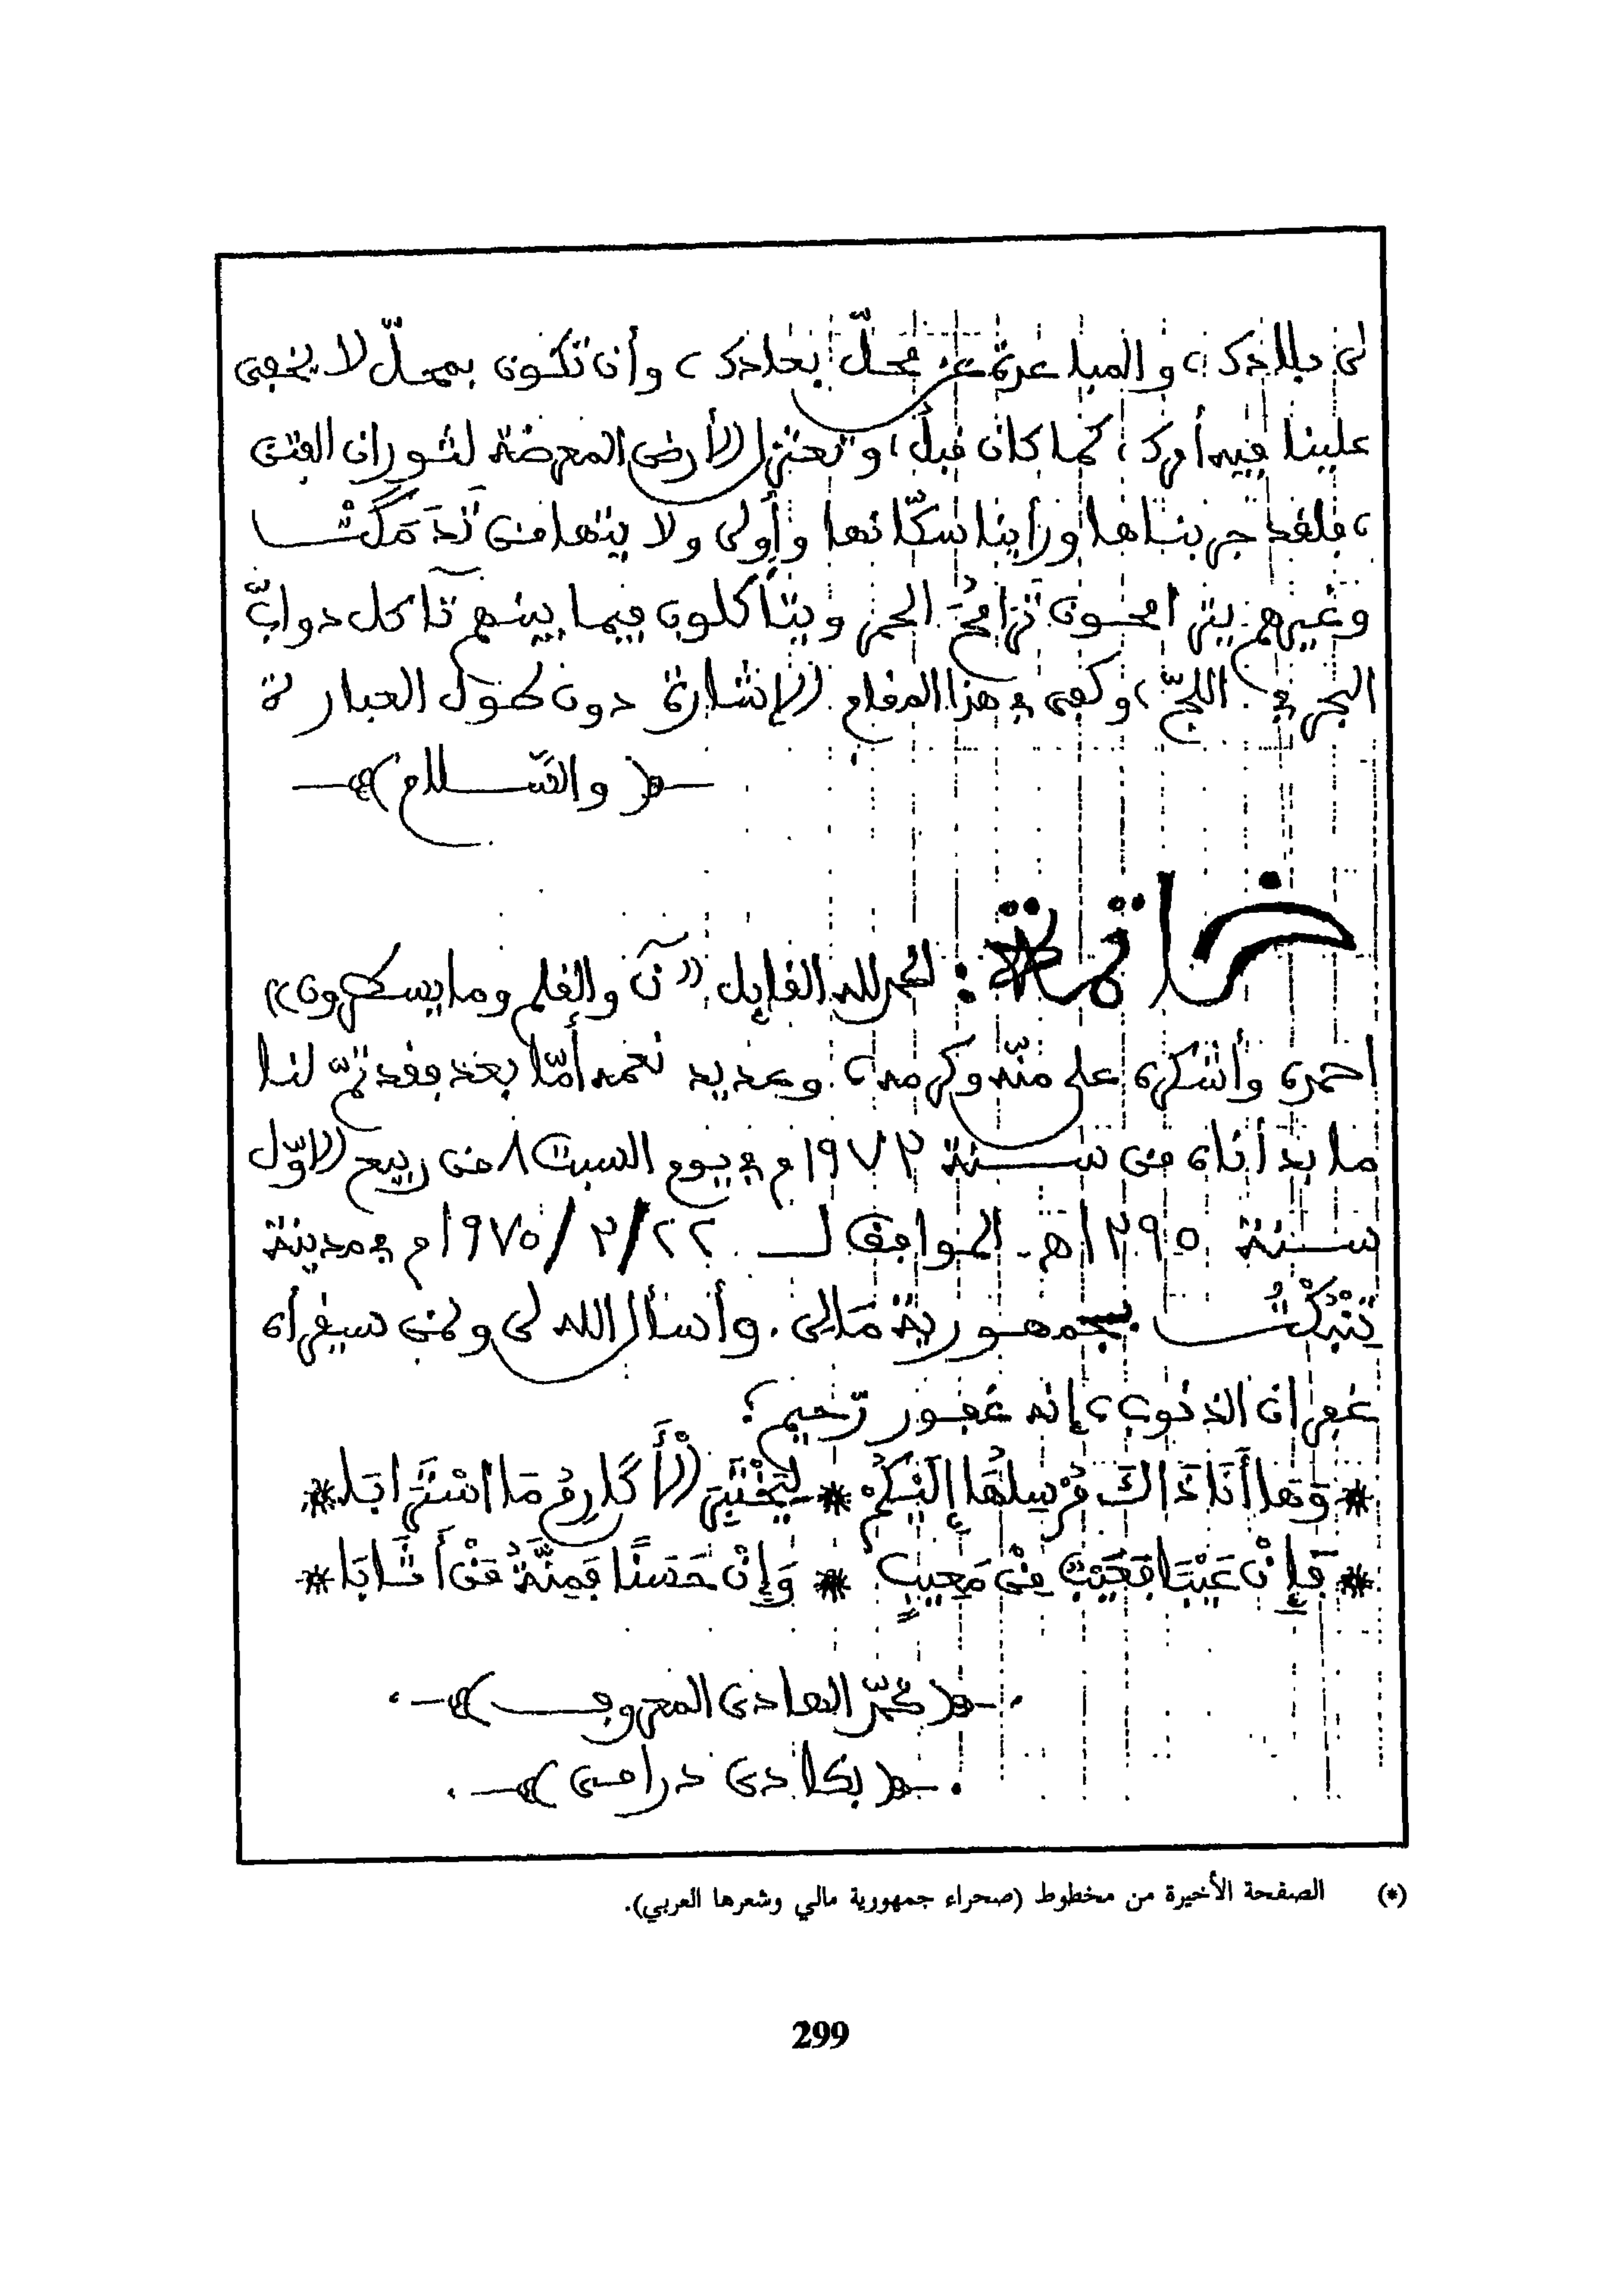 لى بلادك، والمباعدة عن محلّ بعادك، وأن تكون بمحلّ لا يخفى
علينا فيه أمرك، كما كان قبل، وتعتزل الأرض المعرضة لثوران الفتن
، فلقد جربناها ورأينا سكّانها وأولى ولا يتهامن تَدَمَكّتْ
وغيرهم يتزامحون تزامُحَ الحمر ويتأكلون فيما بينهم تآكل دوابّ
البحر في اللجّ، وكفى في هذا المقام الإشارة دون طول العبارة
﴿ والسّلام ﴾
خاتمة : الحمد لله القائل «نٓ والقلم وما يسطرون»
احمده وأشكره على منّه وكرمه، وعديد نعمه أمّا بعد فقد تمّ لنا
ما بدأناه من سنة ١٩٧٣م في يوم السبت ٨ من ربيع الاوّل
سنة ١٣٩٥هـ الموافق لـ ٢٢/٣/١٩٧٥م في مدينة
تِنْبُكْتُ بجمهورية مَالِى. وأسأل الله لى ولمن سيقرأه
غفران الذنوب، إنه غفور رّحيم؟
* وَهَا أَنَا ذَاكَ مُرْسِلُهَا إِلَيْكُمْ * لِيَخْتَبِرَ الْأَكَارِمُ مَا اسْتَرَابَا *
* فَإِنْ عَيْبًا فَعَيْبٌ مِنْ مَعِيبٍ * وَإِنْ حَسَنًا فَمِنَّةُ مَنْ أَثَابَا *
﴿ محمّد الهادى المعروف ﴾
﴿ بكادى درامى ﴾
(*) الصفحة الأخيرة من مخطوط (صحراء جمهورية مالي وشعرها العربي).
299